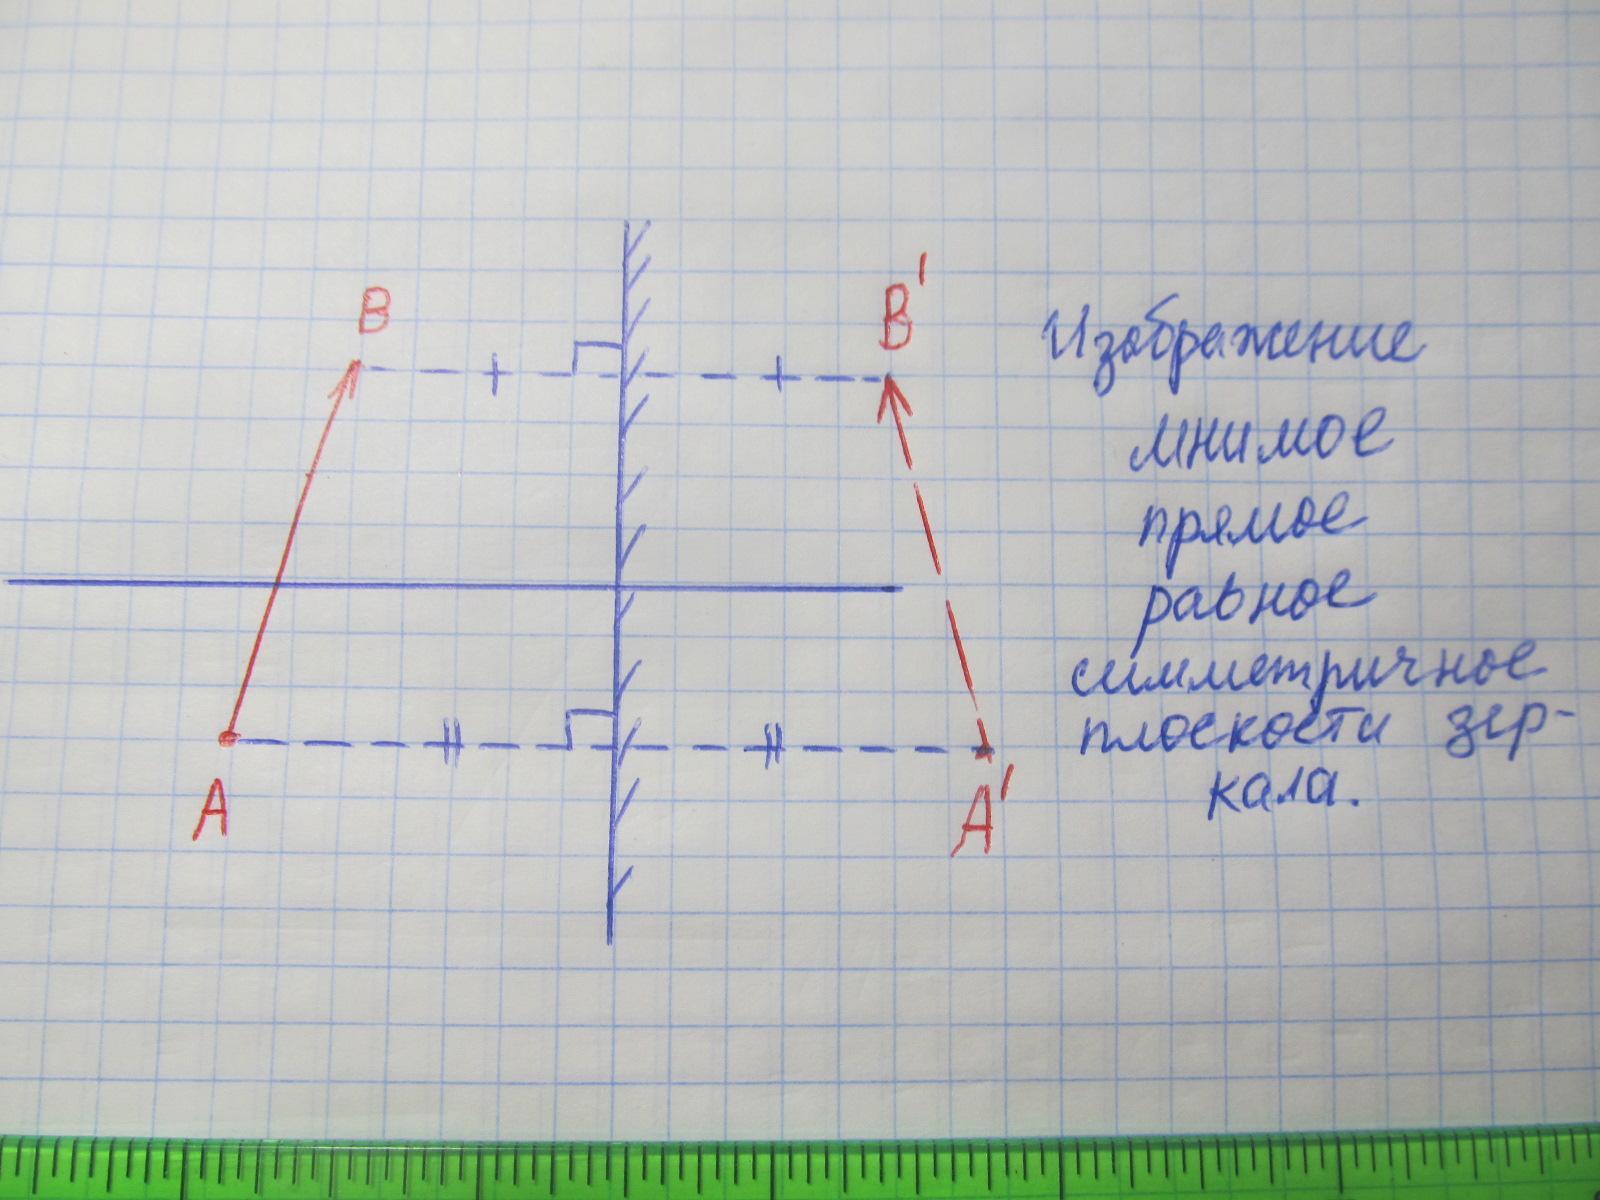 B
B'
A
A'
Изображение
мнимое
прямое
равное
симметричное
плоскости зер-
кала.